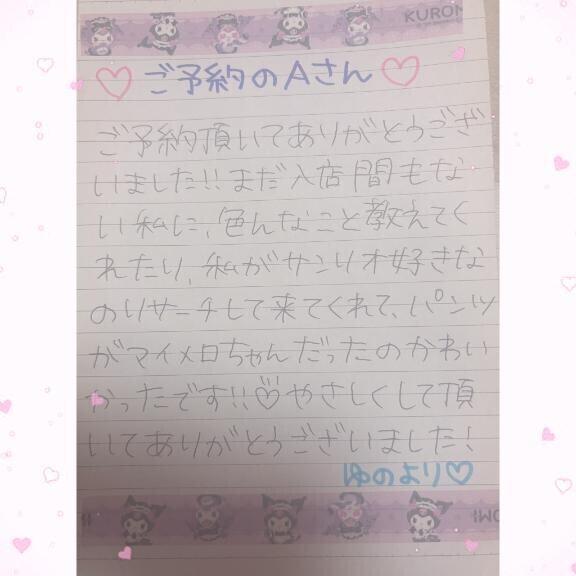 KUROM
ご予約のAさん
ご予約頂いてありがとうござ
いました!!まだ入店間もな
い私に、色んなこと教えてく
れたり、私がサンリオ好きな
のリサーチして来てくれて、パンツ
がマイメロちゃんだったのかわい
かったです!!♡やさしくして頂
いてありがとうございました!
ゆのより♡
OMI